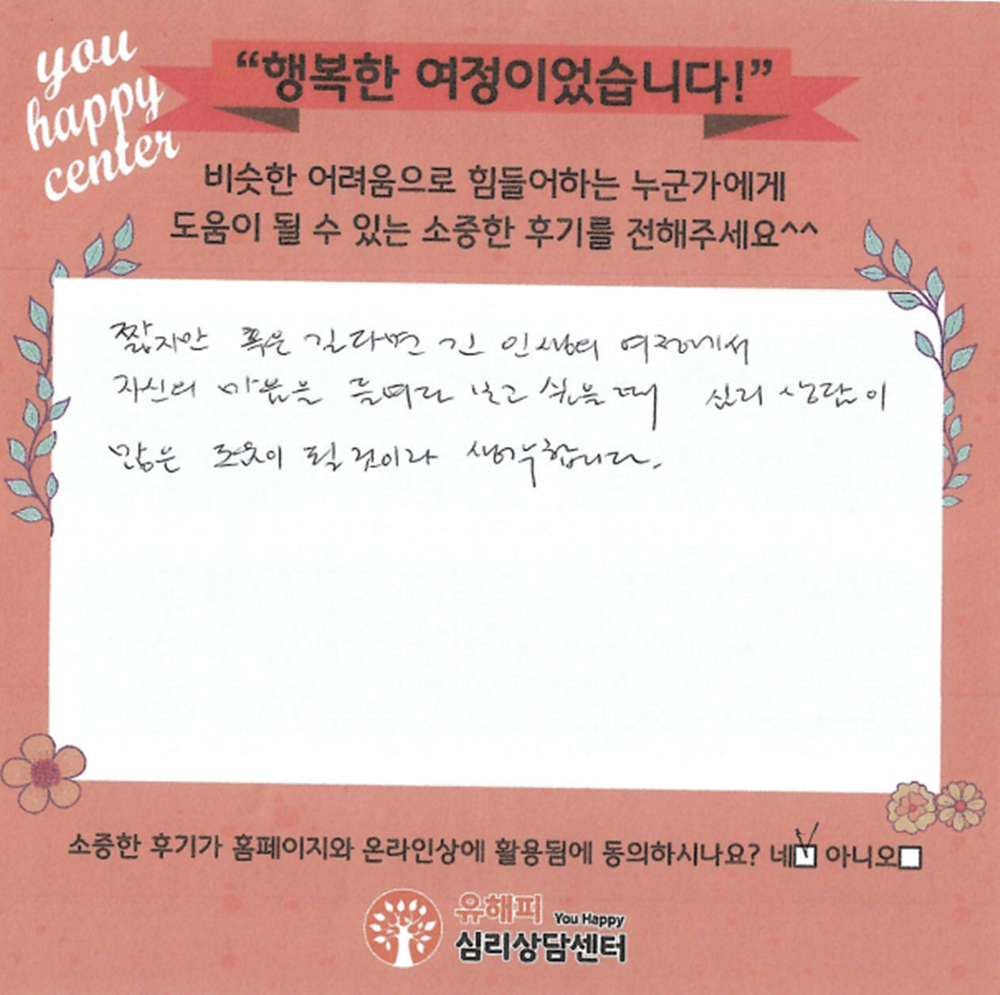 you
happy
center
“행복한 여정이었습니다!”
비슷한 어려움으로 힘들어하는 누군가에게
도움이 될 수 있는 소중한 후기를 전해주세요^^
짧지만 혹은 길다면 긴 인생의 여정에서
자신의 마음을 들여다 보고 싶을 때 심리 상담이
많은 도움이 될 것이라 생각합니다.
소중한 후기가 홈페이지와 온라인상에 활용됨에 동의하시나요? 네☑ 아니오☐
유해피 You Happy
심리상담센터